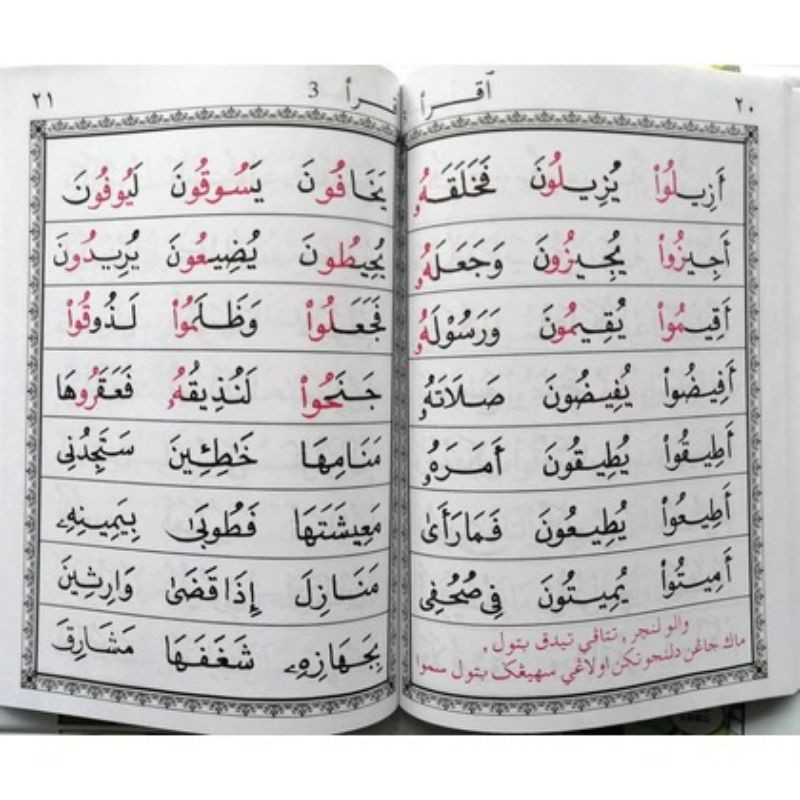 ٢٠ اقرأ
أَزِيلُوْا يُزِيلُوْنَ فَخَلَقَهُۥ
أَجِيزُوْا يُجِيزُوْنَ وَجَعَلَهُۥ
أَقِيمُوْا يُقِيمُوْنَ وَرَسُوْلَهُۥ
أَفِيضُوْا يُفِيضُوْنَ صَلَاتَهُۥ
أَطِيقُوْا يُطِيقُوْنَ أَمَرَهُۥ
أَطِيعُوْا يُطِيعُوْنَ فَمَارَأَىٰ
أَمِيتُوْا يُمِيتُوْنَ فِيْ صُحُفِيْ
والو لنچر , تتاڤي تيدق بتول ,
ماك جاڠن دلنجوتكن اولاڠي سهيڠݢ بتول سموا
اقرأ 3 ٢١
يَخَافُوْنَ يَسُوْقُوْنَ لَيُوْفُوْنَ
يُحِيطُوْنَ يُضِيعُوْنَ يُرِيدُوْنَ
فَجَعَلُوْا وَظَلَمُوْا لَذُوْقُوْا
جَنَحُوْا لَنُذِيقُهُۥ فَعَقَرُوْهَا
مَنَامِهَا خَٰطِـِٔينَ سَتَجِدُنِيْ
مَعِيشَتَهَا فَطُوْبَىٰ بِيَمِينِهِۦ
مَنَازِلَ إِذَا قَضَىٰ وَارِثِينَ
بِجَهَازِهِۦ شَغَفَهَا مَشَارِقَ